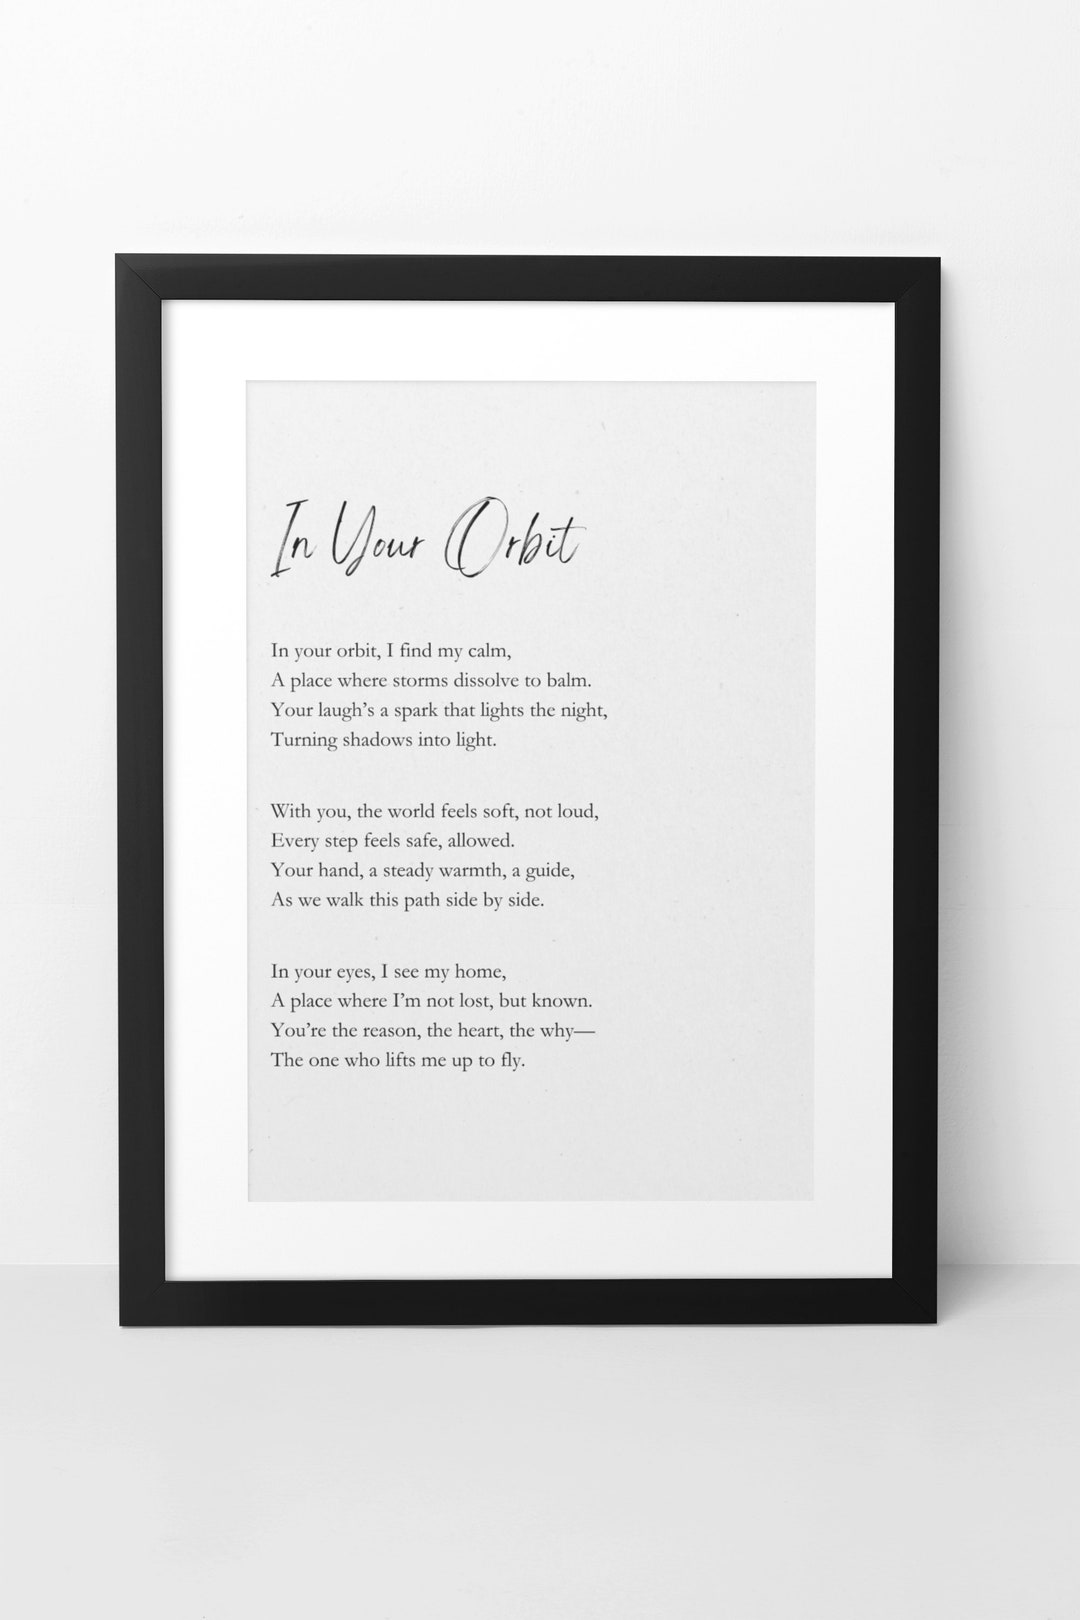 In Your Orbit
In your orbit, I find my calm,
A place where storms dissolve to balm.
Your laugh’s a spark that lights the night,
Turning shadows into light.
With you, the world feels soft, not loud,
Every step feels safe, allowed.
Your hand, a steady warmth, a guide,
As we walk this path side by side.
In your eyes, I see my home,
A place where I’m not lost, but known.
You’re the reason, the heart, the why—
The one who lifts me up to fly.